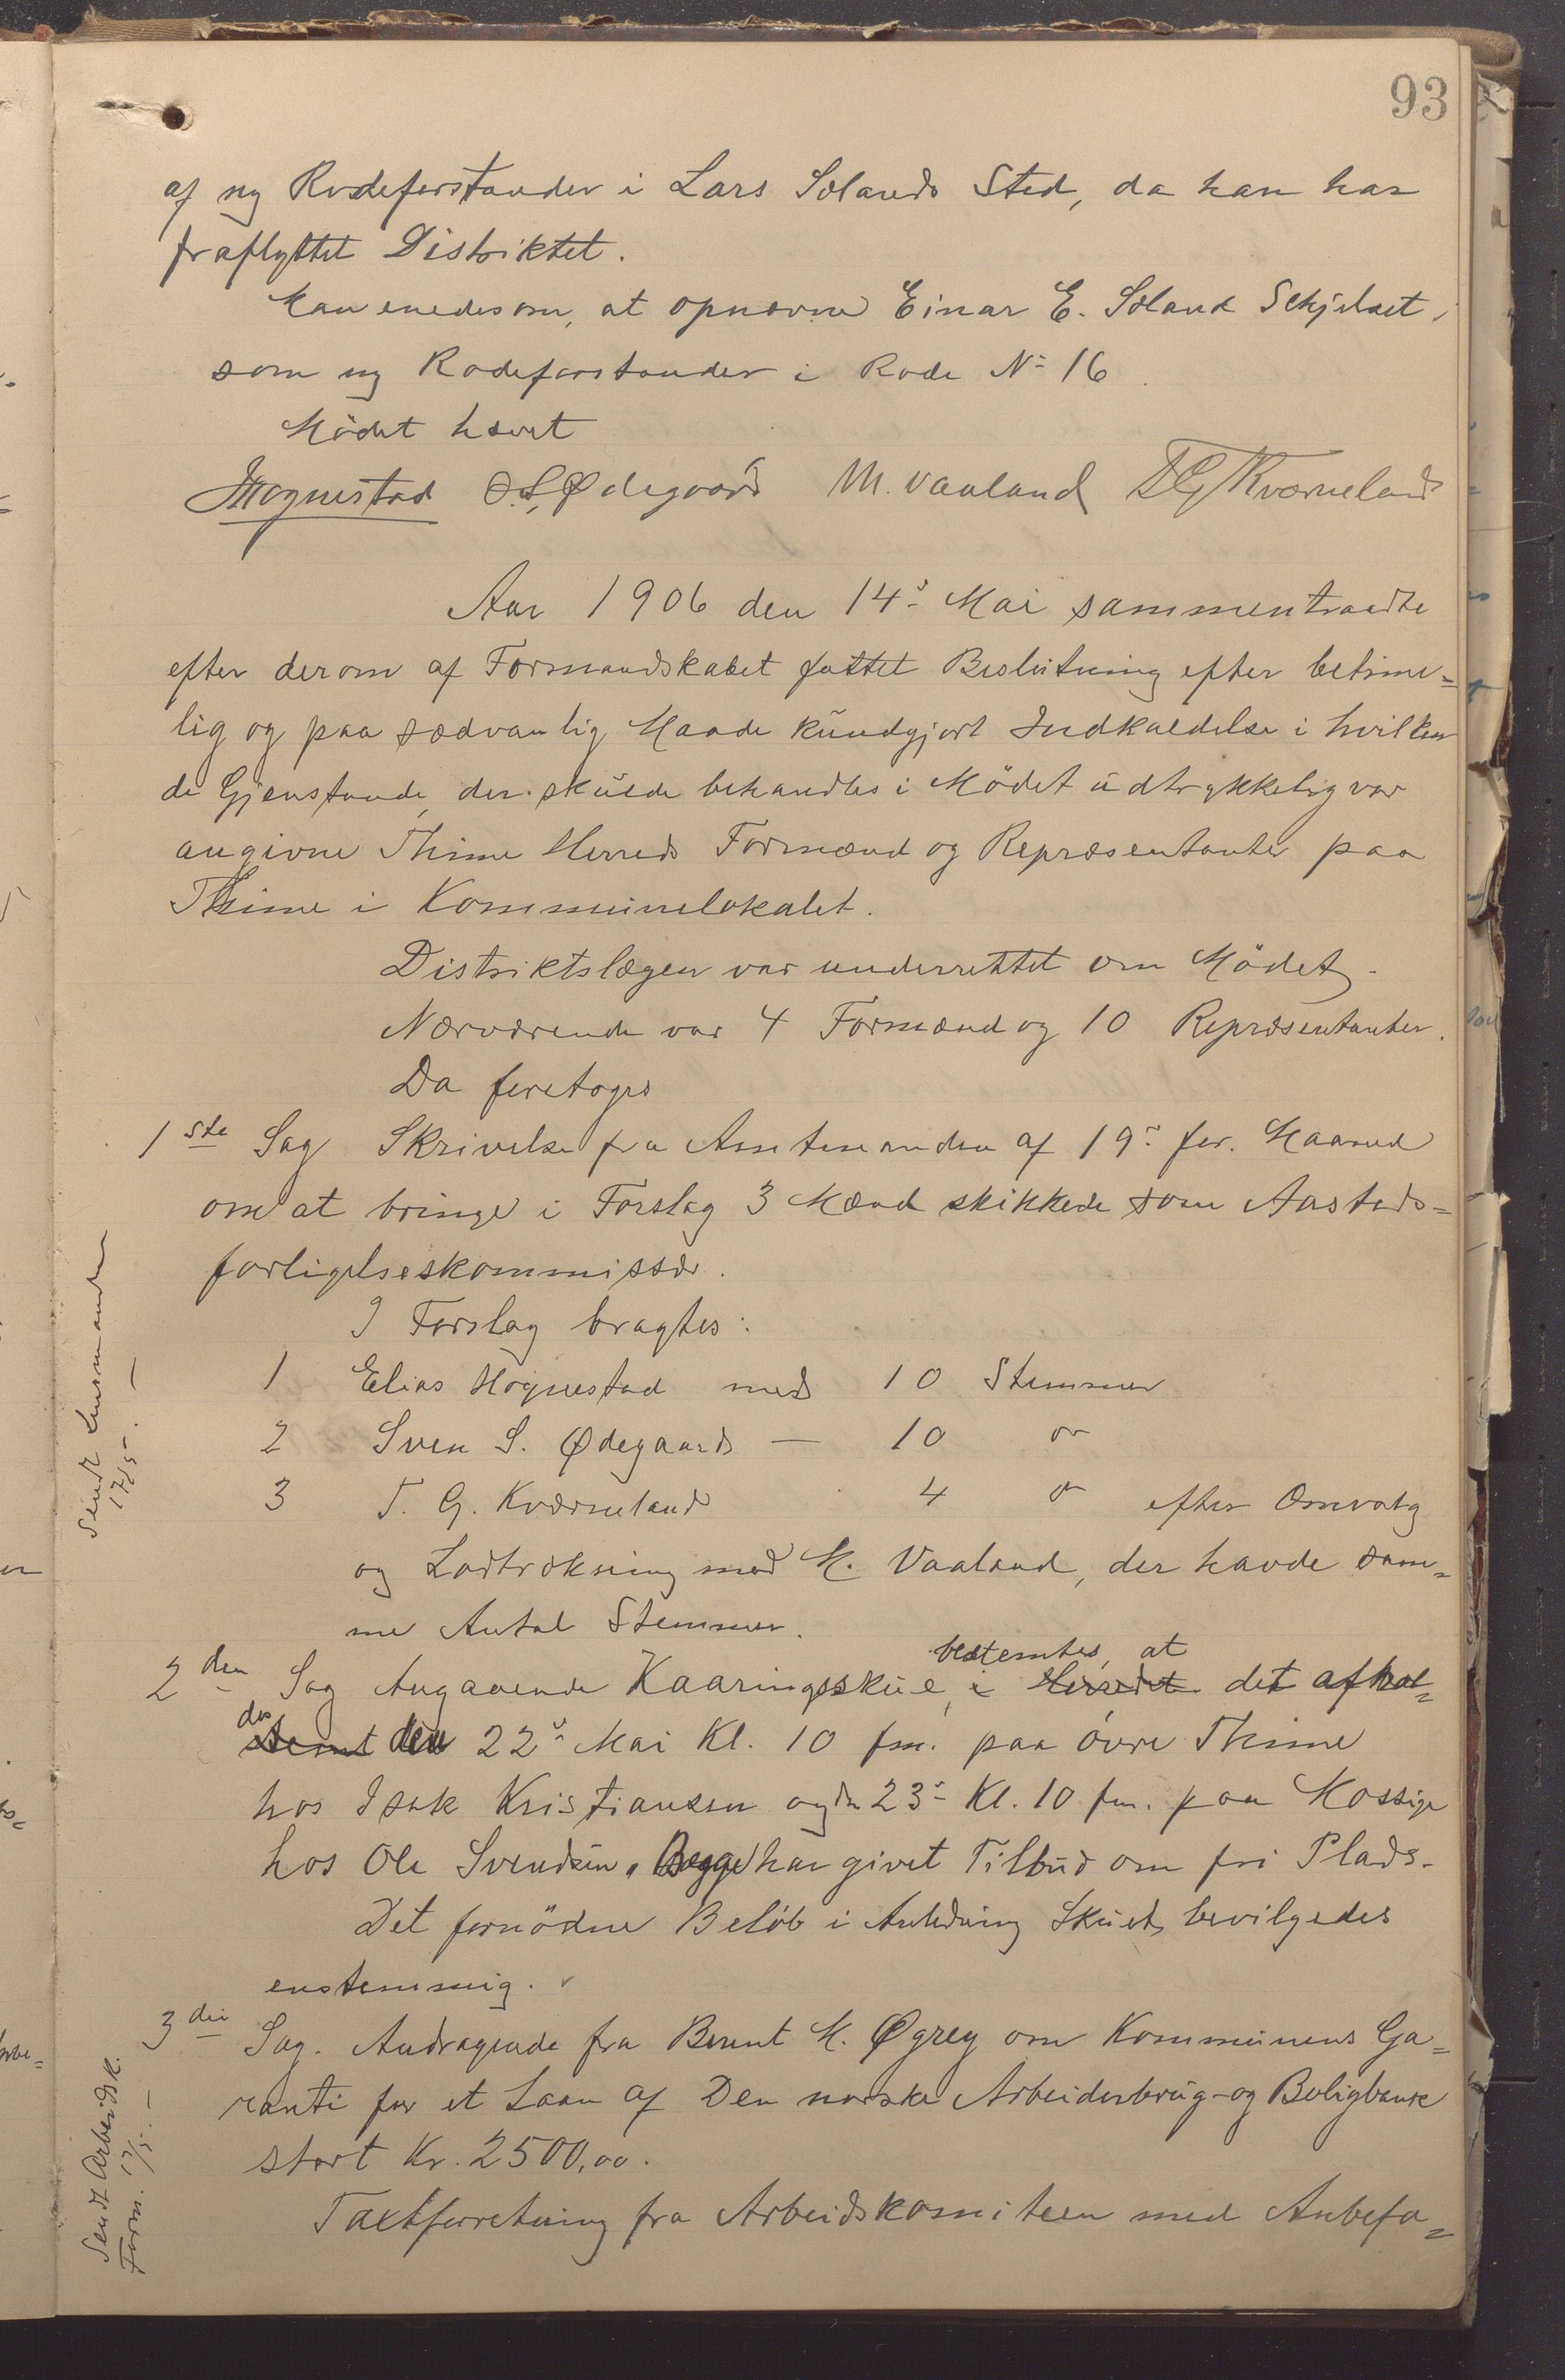 93
af ny Rodeforstander i Lars Sølands Sted, da han har
fraflyttet Distriktet.
Man enedes om, at opnævne Einar E. Søland Skjelset,
som ny Rodeforstander i Rode No 16
Mödet hævet
Hognestad S. S. Ødegaard M. Vaaland T G Kværneland
Aar 1906 den 14de Mai sammentraadte
efter derom af Formandskabet fattet Beslutning efter betime=
lig og paa sædvanlig Maade kundgjort Indkaldelse i hvilken
de Gjenstande, der skulde behandles i Mödet udtrykkelig var
angivne Thime Herreds Formænd og Repræsentanter paa
Thime i Kommunelokalet.
Distriktslægen var underrettet om Mödet.
Nærværende var 4 Formænd og 10 Repræsentanter.
Da foretoges
1ste Sag Skrivelse fra Amtmanden af 19de for. Maaned
om at bringe i Forslag 3 Mænd skikkede som Aasteds=
forligelseskommissær.
I Forslag bragtes:
1 Elias Hognestad med 10 Stemmer
2 Sven S. Ødegaard — 10 do
3 T. G. Kværneland 4 do efter Omvalg
og Lodtrækning med M. Vaaland, der havde sam=
me Antal Stemmer.
Sendt Lensmanden
17/5. —
2den Sag Angaaende Kaaringsskue, i Herredet bestemtes, at det afhol=
des stemt den 22de Mai Kl. 10 fm. paa övre Thime
hos Isak Kristiansen og den 23de Kl. 10 fm. paa Mossige
hos Ole Svendsen. Begge har givet Tilbud om fri Plads.
Det fornödne Belöb i Anledning Skuet, bevilgedes
enstemmig.
3die Sag. Andragende fra Berent M. Øgrey om Kommunens Ga=
ranti for et Laan af Den norske Arbeiderbrug- og Boligbank
stort Kr. 2500,00.
Taxtforretning fra Arbeidskomiteen med Anbefa=
Sendt Arbeidsk.
Form. 17/5. —